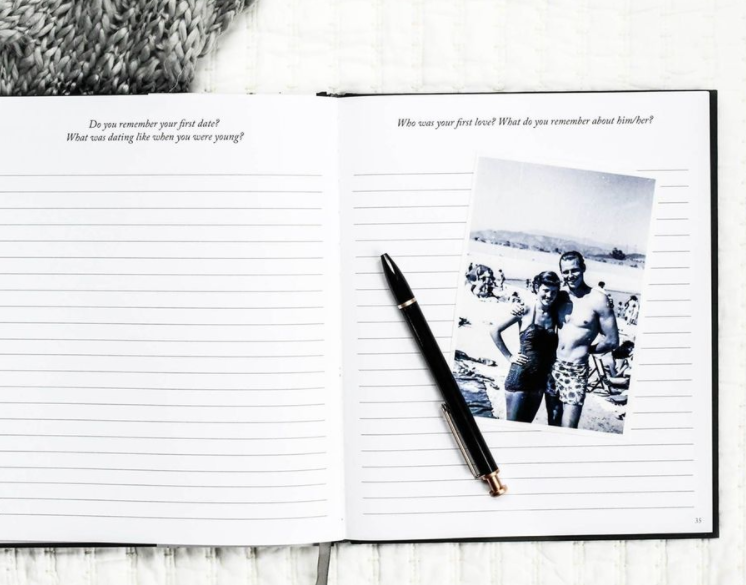 Do you remember your first date?
What was dating like when you were young?
Who was your first love? What do you remember about him/her?
33